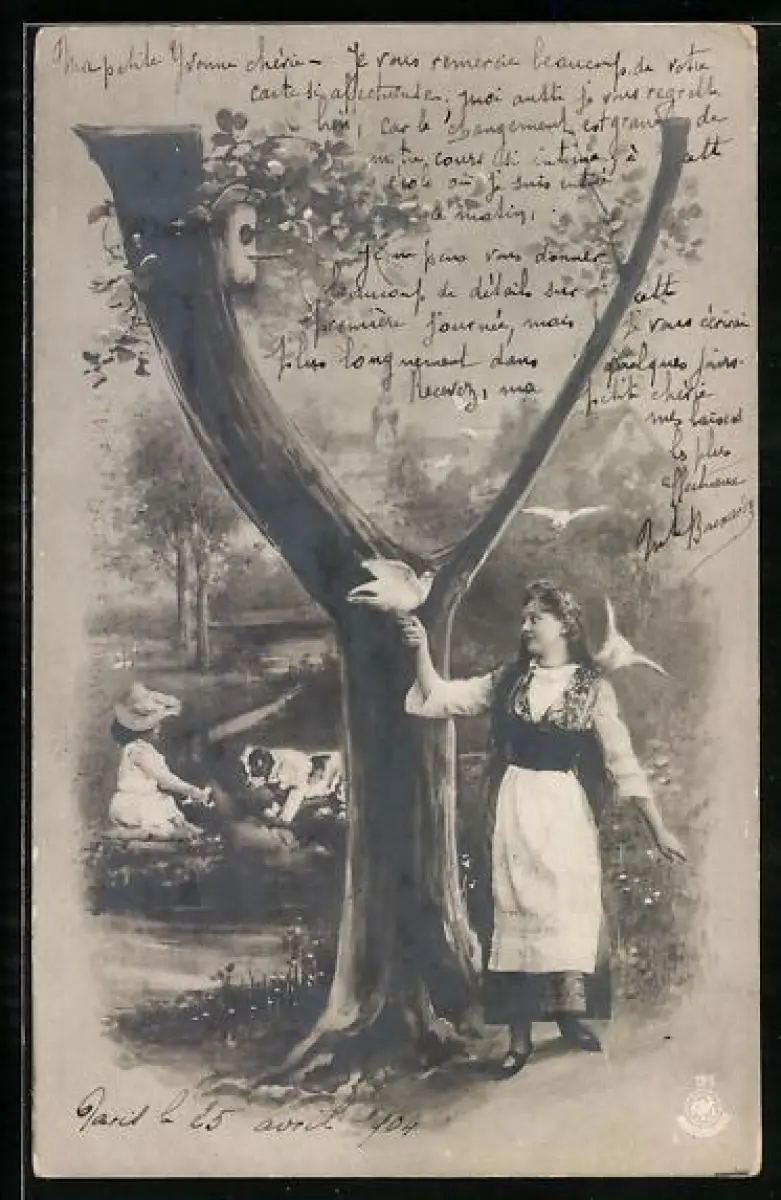 Ma petite Yvonne chérie - Je vous remercie beaucoup de votre
carte si affectueuse, moi aussi je vous regrette
car le changement est grand de
notre cours si intime à cette
école où je suis entrée
ce matin.
Je ne puis vous donner
beaucoup de détails sur cette
première journée, mais je vous écrirai
plus longuement dans quelques jours.
Recevez, ma petite chérie
mes baisers
les plus
affectueux
Paris le 25 avril 1904